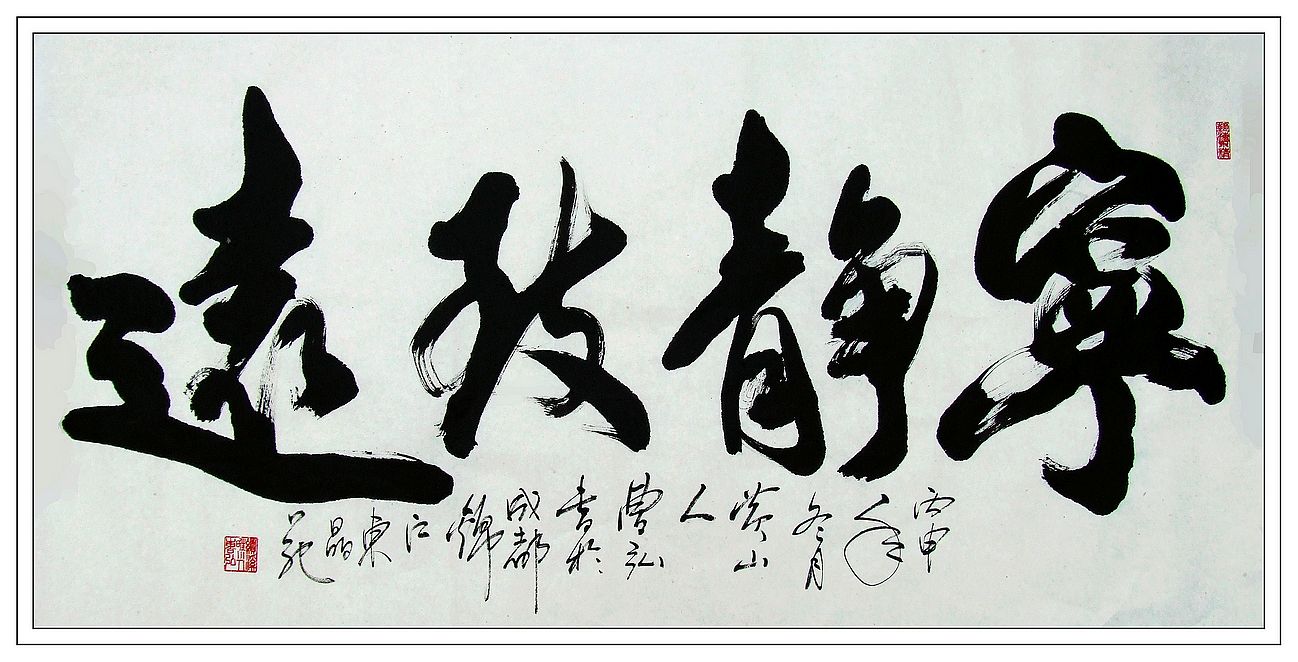 寧靜致遠
丙申年冬月黄山人曹弘書於成都錦江東晶苑